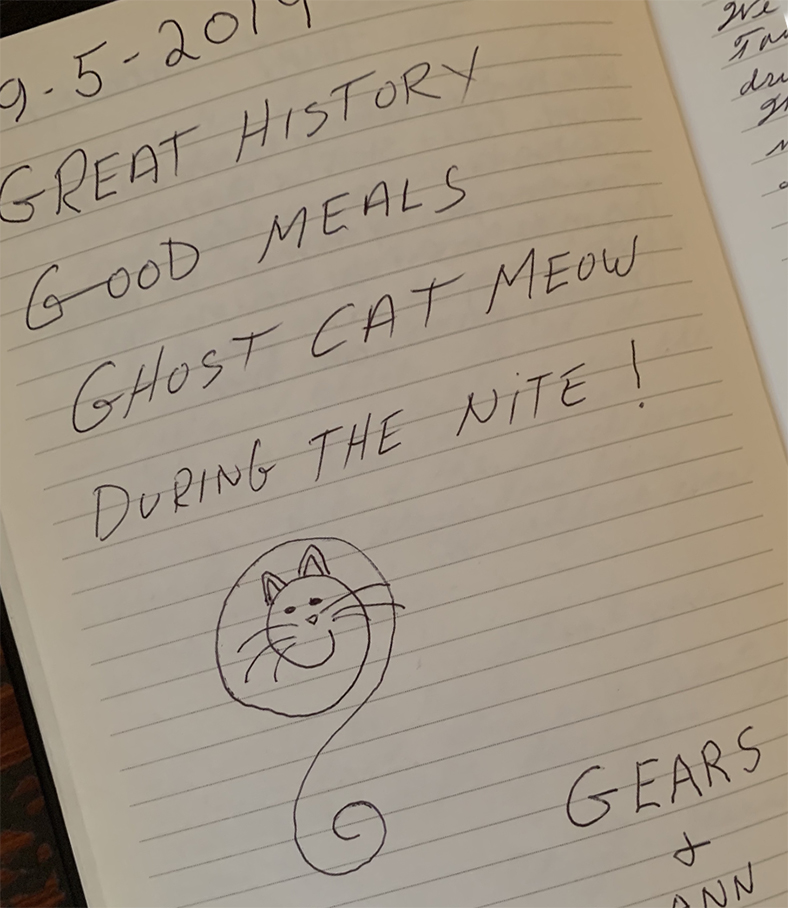 9-5-2019
GREAT HISTORY
GOOD MEALS
GHOST CAT MEOW
DURING THE NITE!
GEARS
&
ANN
We